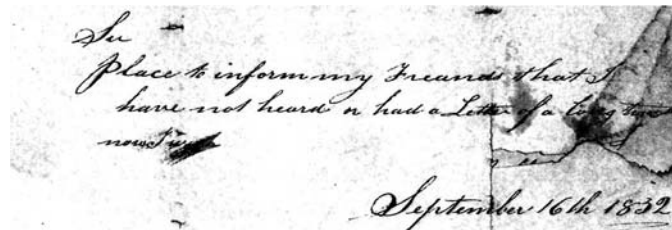 Sir
Place to inform my Freands that I
have not heard or had a Letter of a long time
now I
September 16th 1832